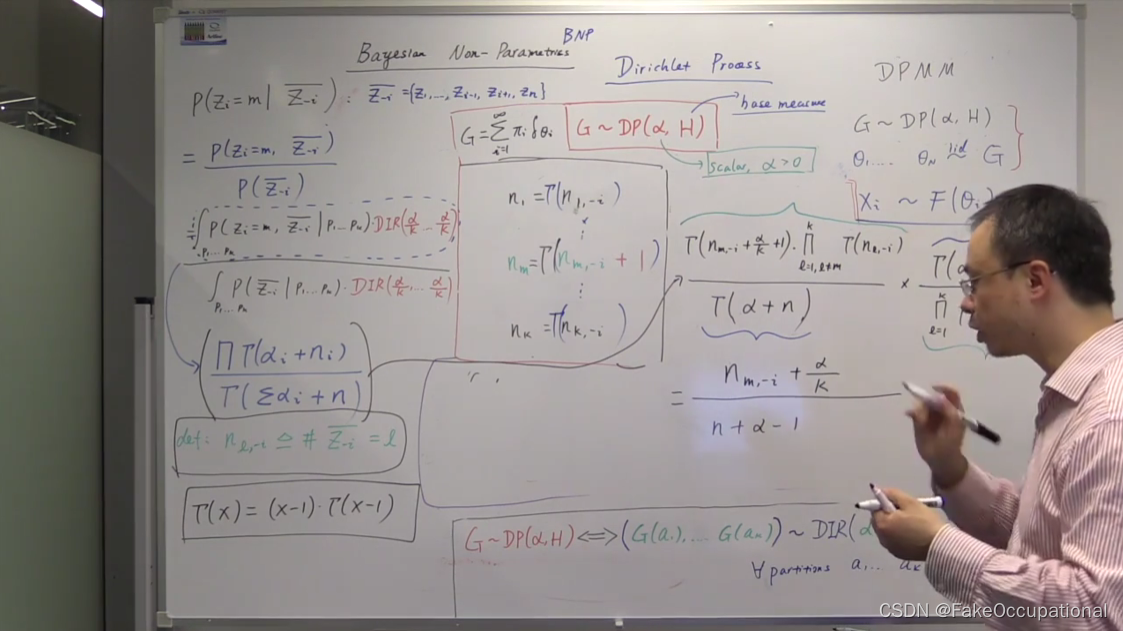 BNP
Bayesian Non-Parametrics
Dirichlet Process
DPMM
P(Zi=m | Z-i) : Z-i = {Z1,..., Zi-1, Zi+1, Zn}
= P(Zi=m, Z-i)
P(Z-i)
∫ P(Zi=m, Z-i | P1...Pn)·DIR(α/K ... α/K)
P1...Pn
∫ P(Z-i | P1...Pn)·DIR(α/K,... α/K)
P1...Pn
∏ Γ(αi+ni)
Γ(Σαi+n)
def: nl,-i ≙ # Z-i = l
Γ(x) = (x-1)·Γ(x-1)
G = ∞Σi=1 πi δθi
G ~ DP(α, H)
base measure
scalar, α > 0
n1 = Γ(n1,-i)
nm = Γ(nm,-i + 1)
nK = Γ(nK,-i)
G ~ DP(α, H)
θ1,... θN iid~ G
Xi ~ F(θi)
Γ(nm,-i + α/K + 1)· k∏l=1, l≠m Γ(nl,-i)
Γ(α+n)
×
k∏l=1
= nm,-i + α/K
n + α - 1
G ~ DP(α, H) ⟺ (G(a1),... G(an)) ~ DIR(α
∀ partitions a1... aK
CSDN @FakeOccupational